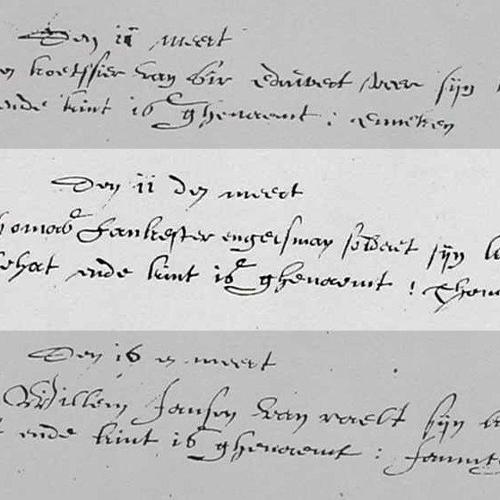 Den 11 meert
koetssier van Sir eduwert veer sijn
ende kint is ghenaemt : enneken
Den 11 den meert
homas Lankester engelsman soldaet sijn
ghat ende kint is ghenaemt : Thom
Den 16 en meert
Willem Jansen van raelt sijn
ende kint is ghenaemt : Jannet